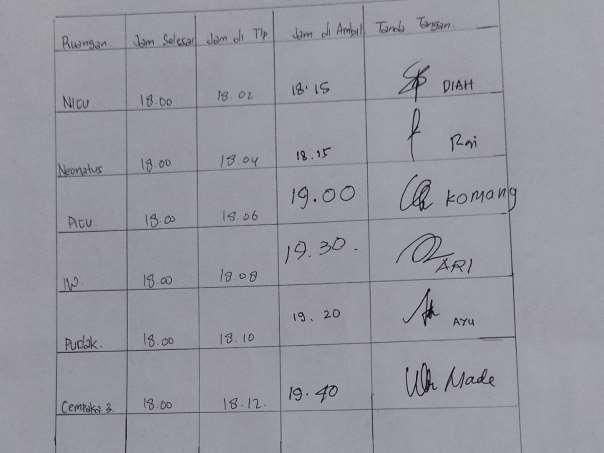 Ruangan Jam Selesai Jam di Tlp Jam di Ambil Tanda Tangan
NICU 18.00 18.02 18.15 DIAH
Neonatus 18.00 18.04 18.15 Rai
PICU 18.00 18.06 19.00 KOMANG
IW. 18.00 18.08 19.30. ARI
Pudak. 18.00 18.10 19.20 AYU
Cempaka 3 18.00 18.12. 19.40 Made